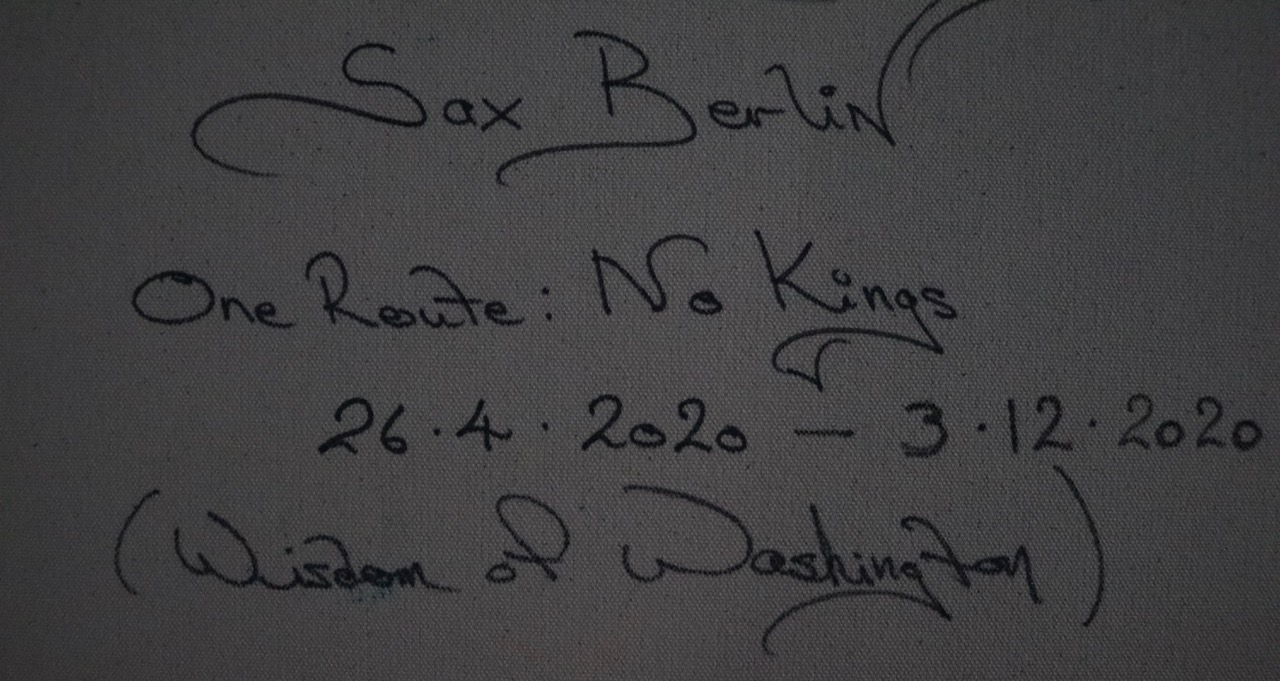 Sax Berlin
One Route: No Kings
26.4.2020 — 3.12.2020
(Wisdom of Washington)